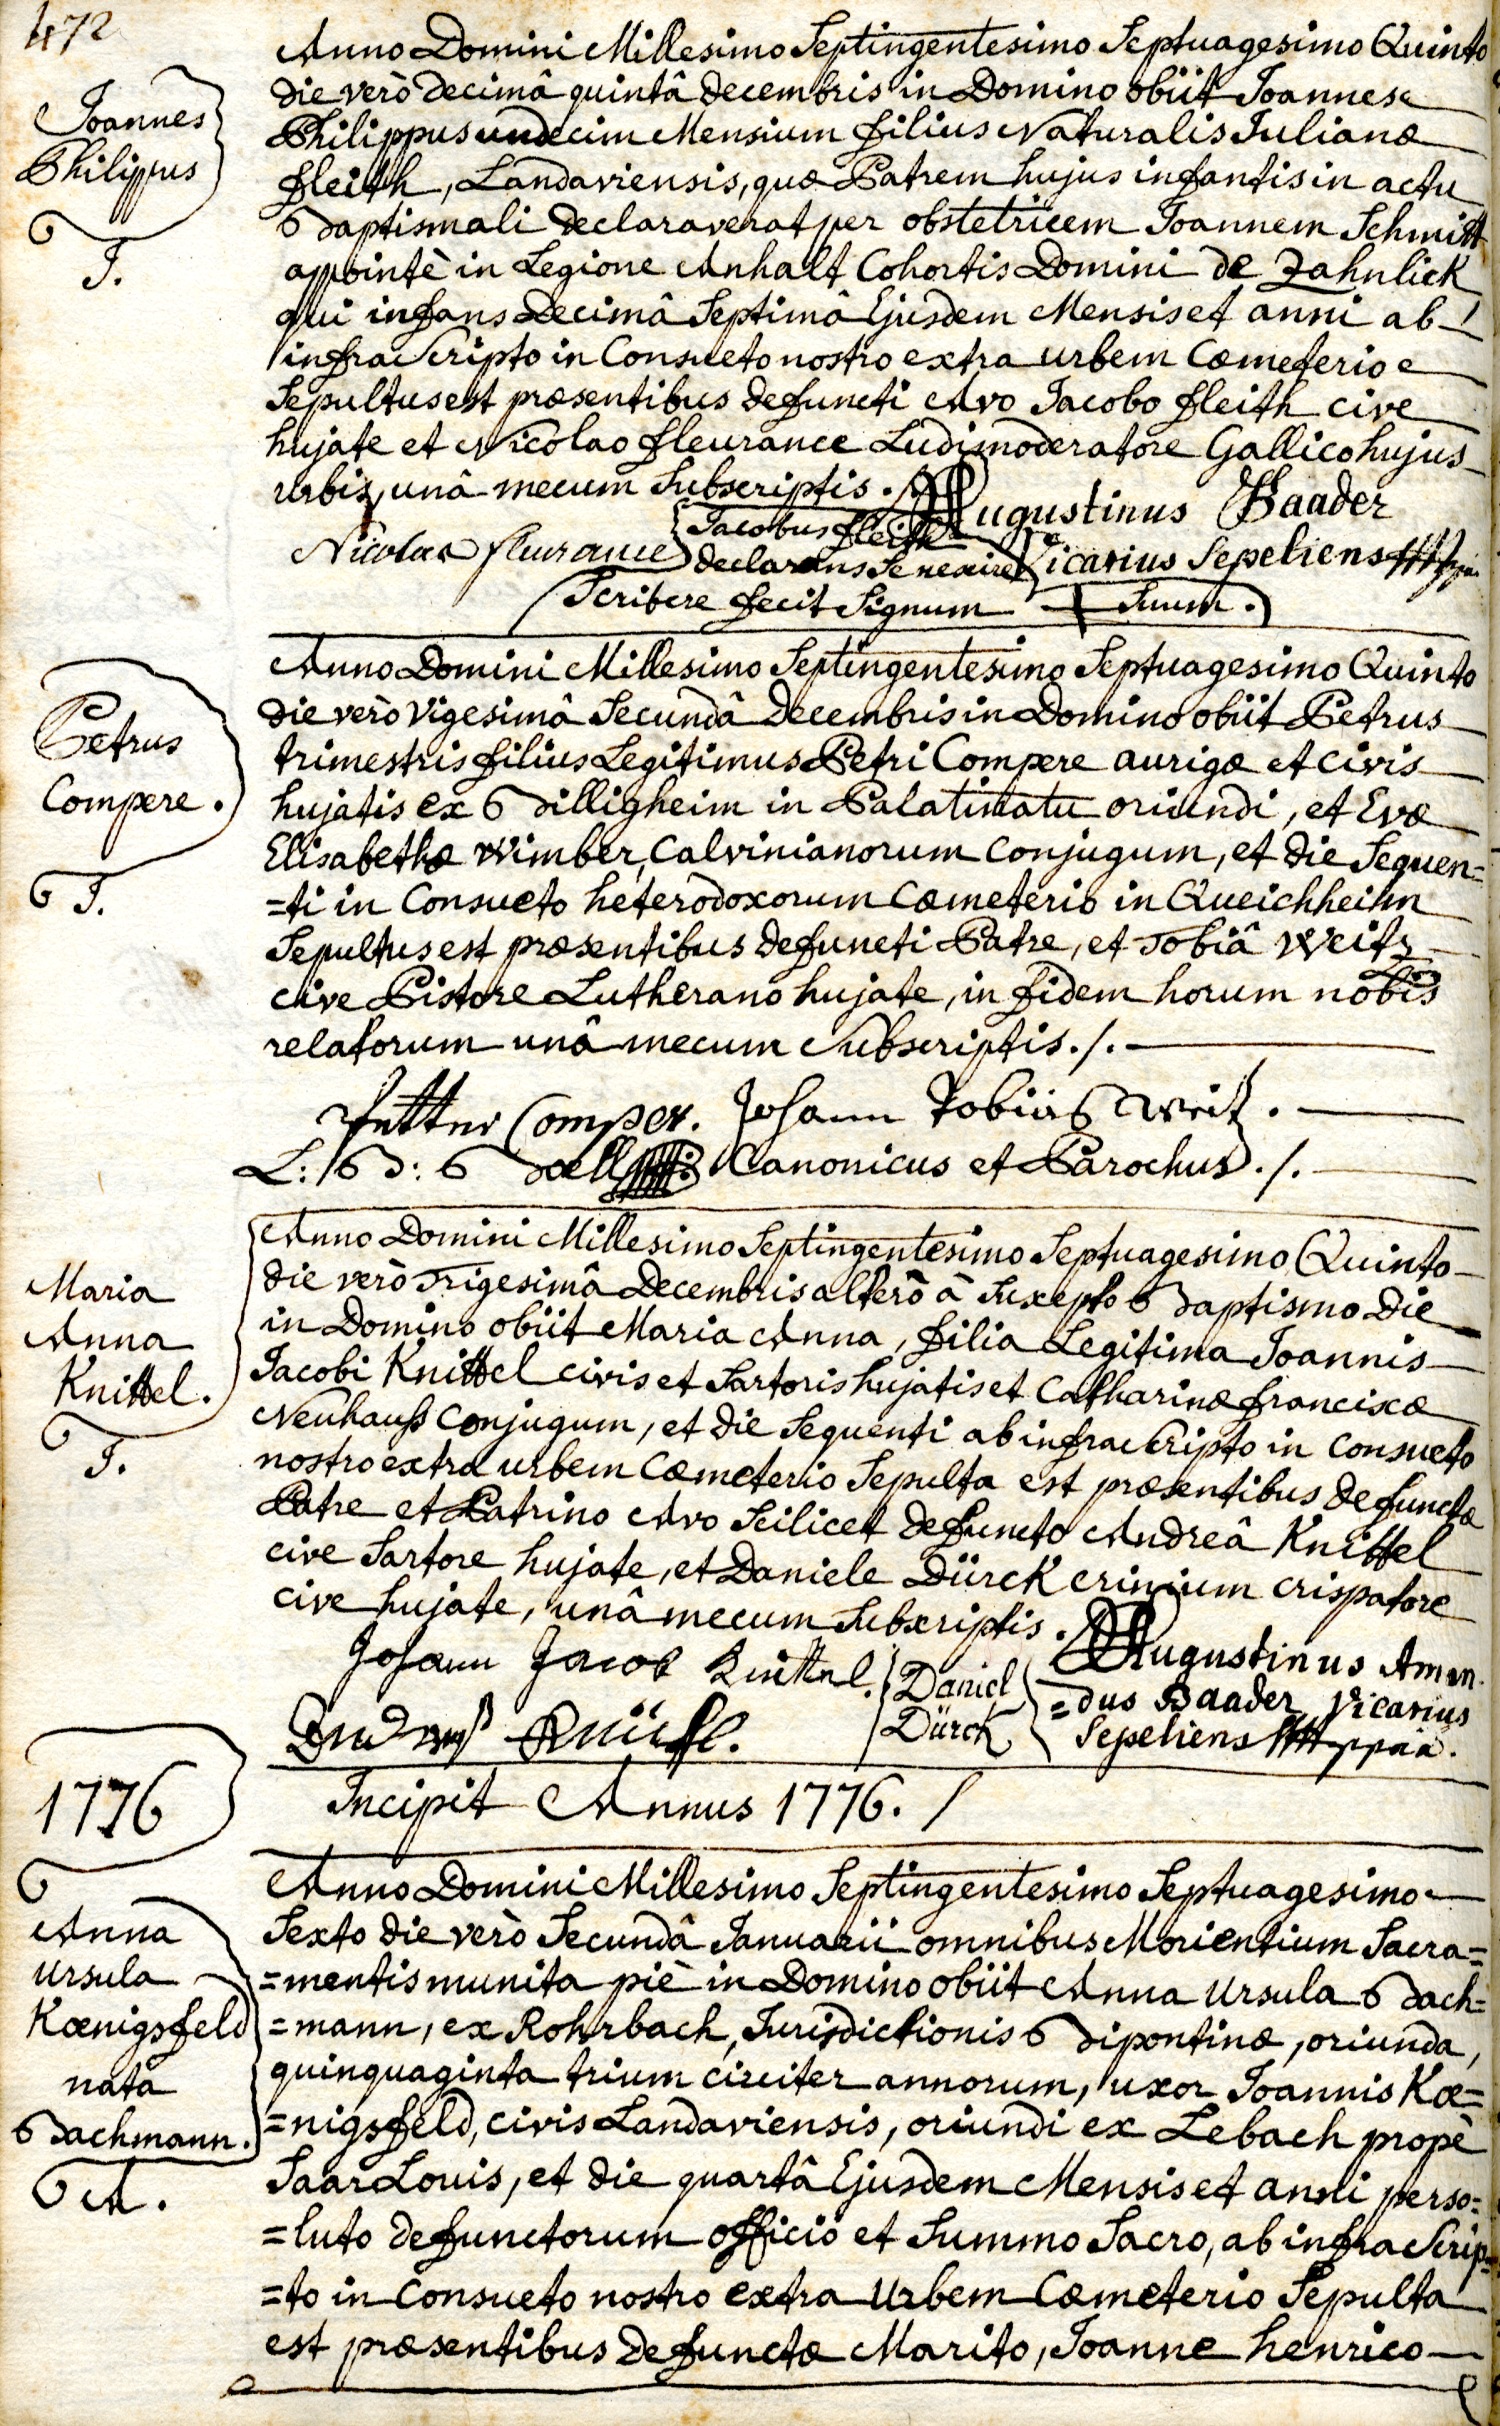 472
Joannes
Philippus
I.
Anno Domini Millesimo Septingentesimo Septuagesimo Quinto
die verò decimâ quintâ decembris in Domino obiit Joannes
Philippus undecim Mensium filius Naturalis Julianæ
fleith, Landaviensis, quæ Patrem hujus infantis in actu
Baptismali declaraverat per obstetricem Joannem Schmitt
appointè in Legione Anhalt Cohortis Domini de Zahnlick
qui infans decimâ Septimâ Ejusdem Mensis et anni ab
infra Scripto in Consueto nostro extra urbem Cœmeterio
Sepultus est præsentibus defuncti Avo Jacobo fleith cive
hujate et Nicolao fleurance Ludimoderatore Gallico hujus
urbis, unâ mecum Subscriptis. Augustinus Baader
Nicolas fleurance Jacobus fleith Vicarius Sepeliens
declarans Se nescire
Scribere fecit Signum + Suum.
Petrus
Compere.
I.
Anno Domini Millesimo Septingentesimo Septuagesimo Quinto
die verò Vigesimâ Secundâ Decembris in Domino obiit Petrus
trimestris filius Legitimus Petri Compere aurigæ et Civis
hujatis ex Billigheim in Palatinatu oriundi, et Evæ
Elisabethæ Wimber, Calvinianorum Conjugum, et die Sequen=
=ti in Consueto heterodoxorum Cœmeterio in Queichheim
Sepultus est præsentibus defuncti Patre, et Tobiâ Weitz
cive Pistore Lutherano hujate, in fidem horum nobis
relatorum unâ mecum Subscriptis./.
Petter Comper. Johann Tobias Weitz.
L: B: Boell Canonicus et Parochus./.
Maria
Anna
Knittel.
I.
Anno Domini Millesimo Septingentesimo Septuagesimo Quinto
die verò Trigesimâ Decembris alterô à Suscepto Baptismo die
in Domino obiit Maria Anna, filia Legitima Joannis
Jacobi Knittel civis et Sartoris hujatis et Catharinæ franciscæ
Neuhauß Conjugum, et die Sequenti ab infra Scripto in Consueto
nostro extra urbem Cœmeterio Sepulta est præsentibus defunctæ
Patre et Patrino Avo Scilicet defuncto Andreâ Knittel
cive Sartore hujate, et Daniele Dürck crinium crispatore
cive hujate, unâ mecum Subscriptis.
Johann Jacob Knittel. Daniel Dürck
Augustinus Aman=
=dus Baader Vicarius
Sepeliens
1776
Incipit Annus 1776./
Anna
Ursula
Kœnigsfeld
nata
Bachmann.
A.
Anno Domini Millesimo Septingentesimo Septuagesimo
Sexto die verò Secundâ Januarii omnibus Morientium Sacra=
=mentis munita piè in Domino obiit Anna Ursula Bach=
=mann, ex Rohrbach, Jurisdictionis Bipontinæ, oriunda,
quinquaginta trium circiter annorum, uxor Joannis Kœ=
=nigsfeld, civis Landaviensis, oriundi ex Lebach propè
Saar Louis, et die quartâ Ejusdem Mensis et anni perso=
=luto defunctorum officio et Summo Sacro, ab infra Scrip=
=to in Consueto nostro extra Urbem Cœmeterio Sepulta
est præsentibus defunctæ Marito, Joanne henrico